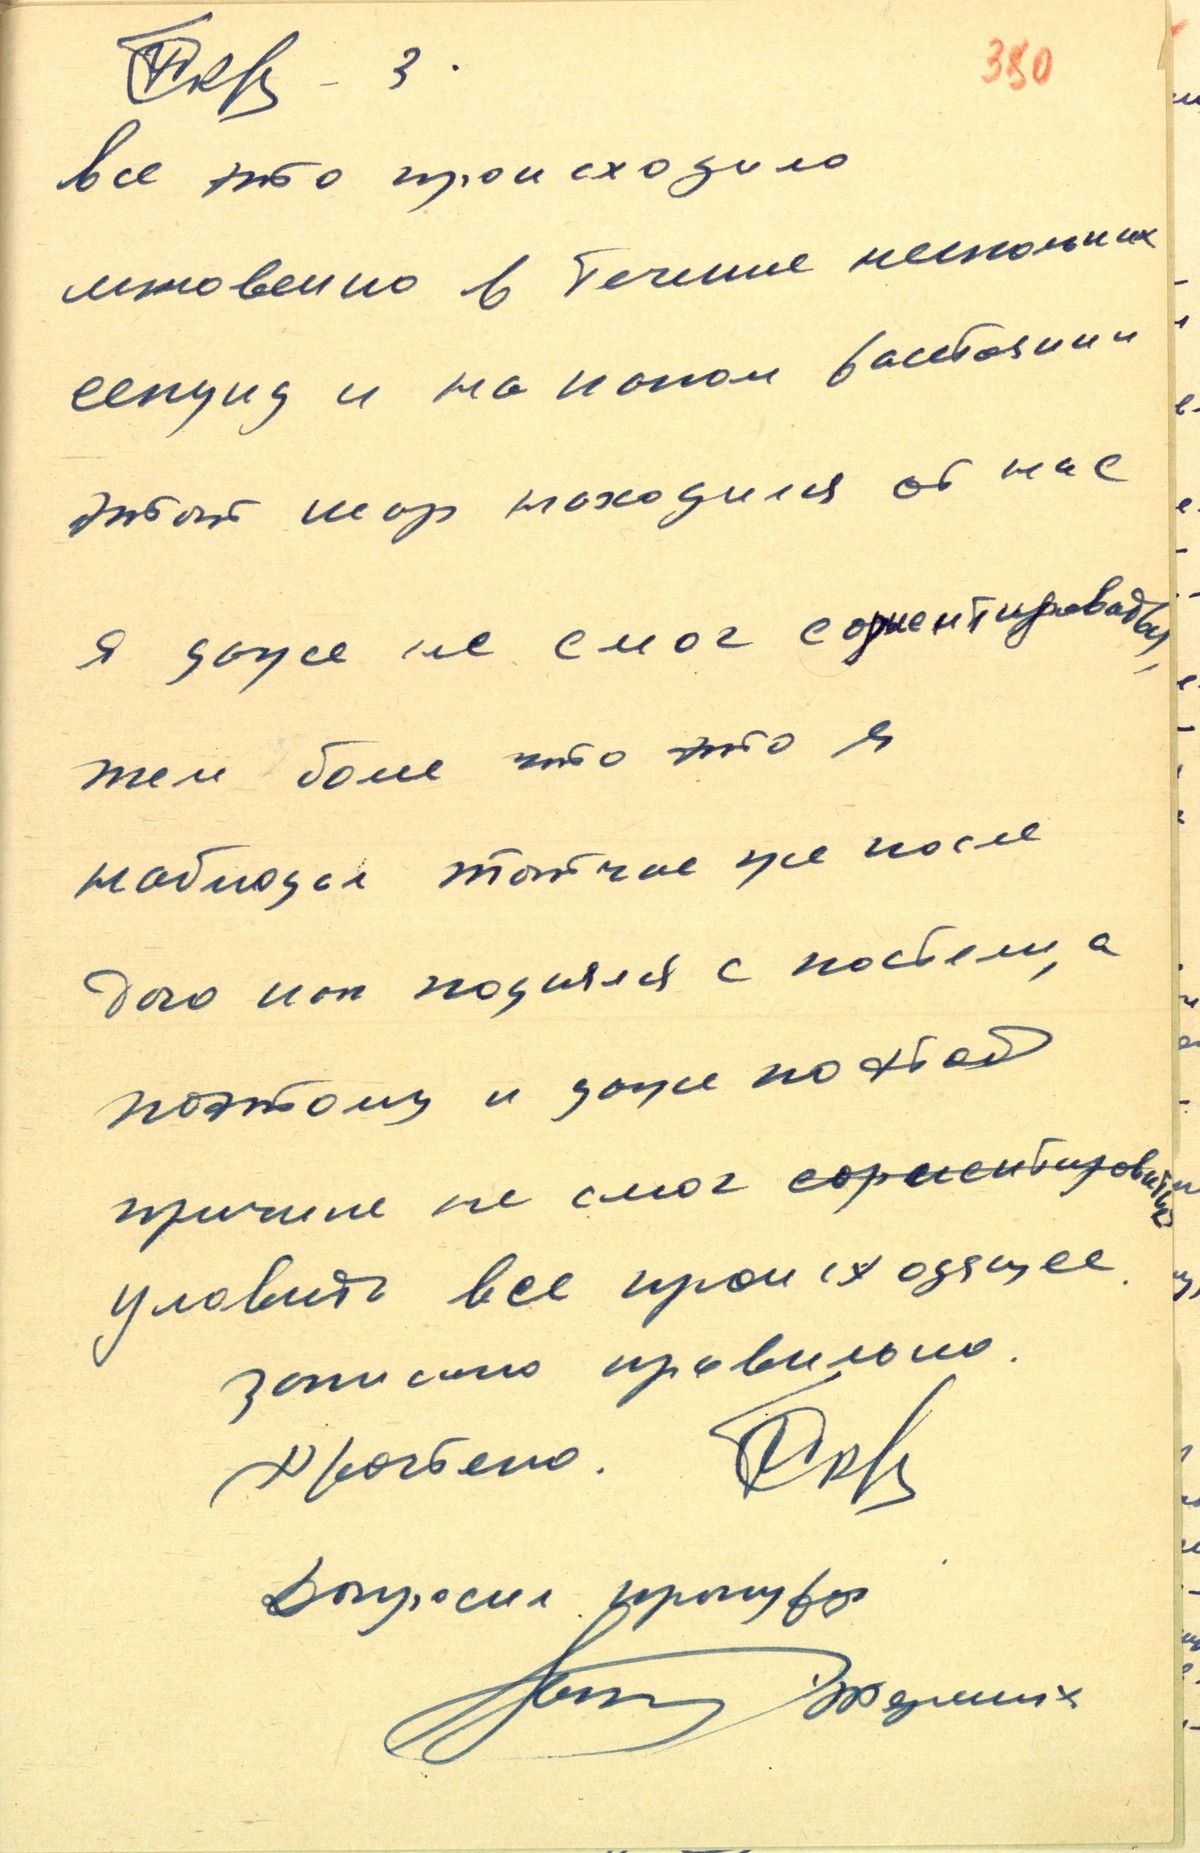 - 3. 380
все это происходило
мгновенно в течение нескольких
секунд и на каком расстоянии
этот шар находился от нас
я даже не смог сориентироваться,
тем боле что это я
наблюдал тотчас же после
того как поднялся с постели, а
поэтому и даже по этой
причине не смог сориентироваться
уловить все происходящее.
записано правильно.
Прочтено.
Допросил прокурор